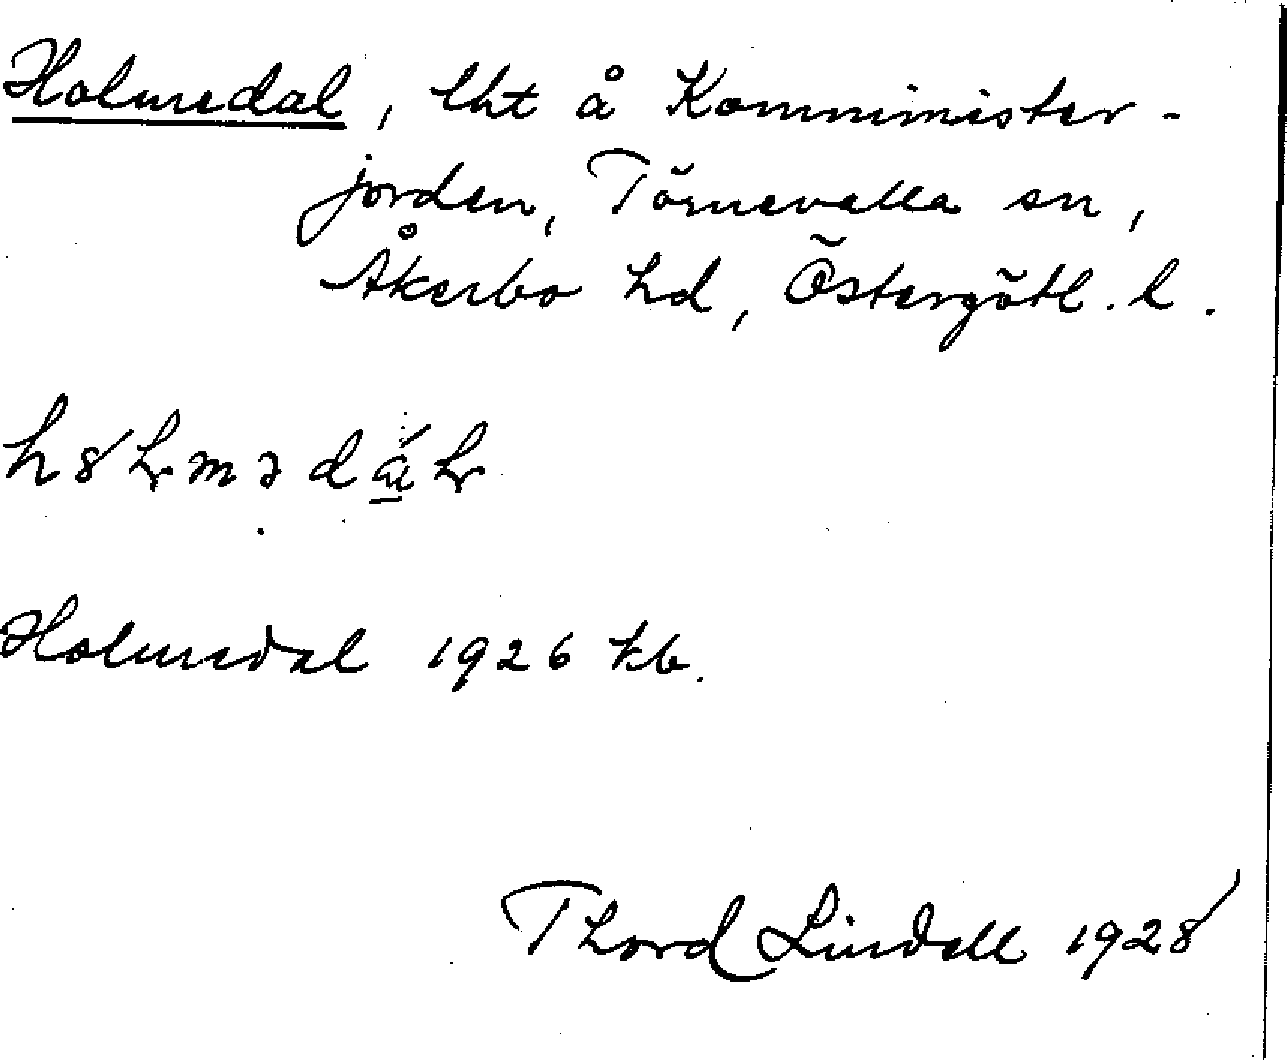 Holmedal, lht å Komminister-
jorden, Törnevalla sn,
Åkerbo hd, Östergötl. l.
Holmedal 1926 kb.
Thord Lindell 1928